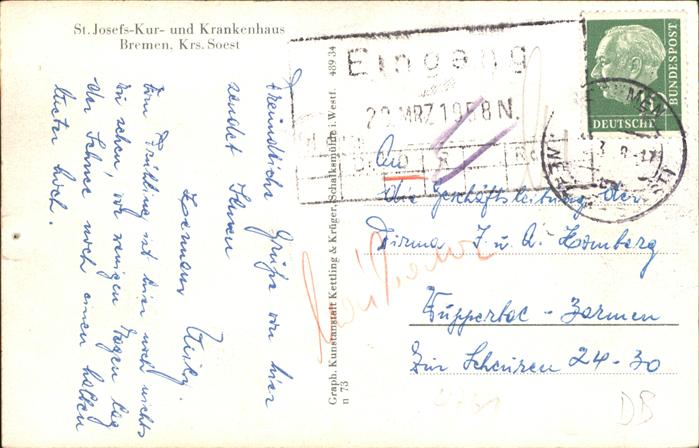 St. Josefs-Kur- und Krankenhaus
Bremen, Krs. Soest
Freundliche Grüße von hier
sendet Ihnen
Hermann
Vom Frühling ist hier noch nichts
zu sehen, vor wenigen Tagen lag
der Schnee noch einen halben
Meter hoch.
Graph. Kunstanstalt Kettling & Krüger, Schalksmühle i. Westf. 489 34
n 73
Eingang
22. MRZ 1958 N.
DEUTSCHE
BUNDESPOST
An
die Geschäftsleitung der
Firma J. u. A. Homberg
Wuppertal-Barmen
Zur Scheuren 24-30
DB